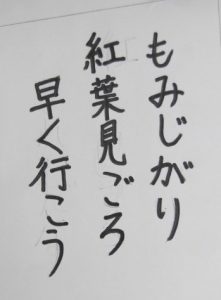 もみじがり
紅葉見ごろ
早く行こう